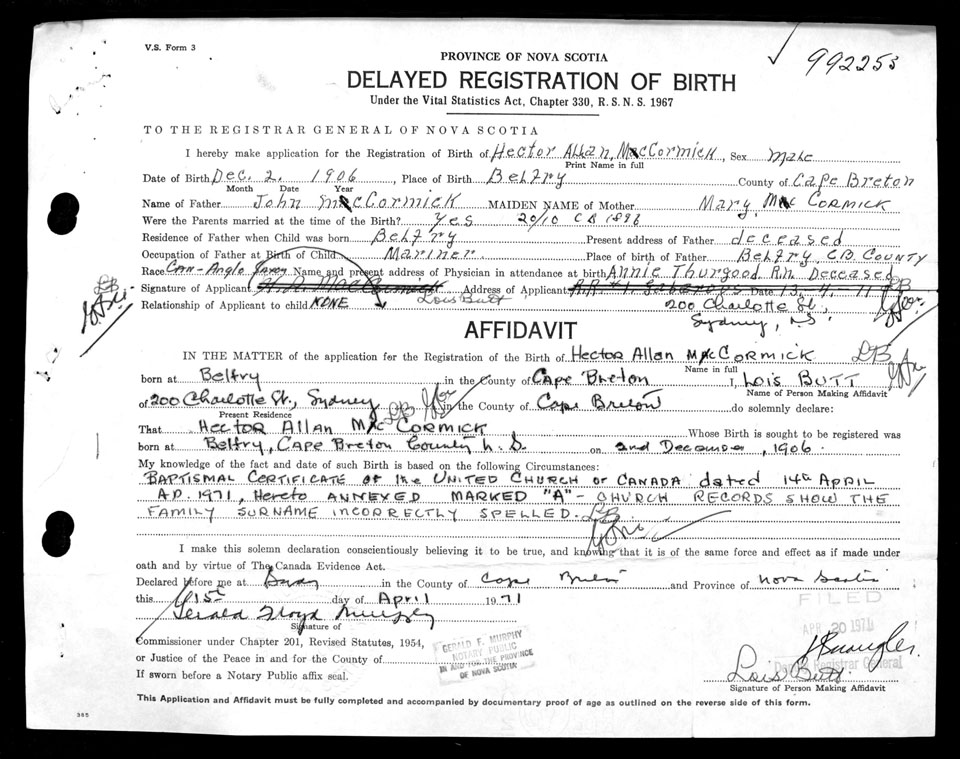 V.S. Form 3
992253
PROVINCE OF NOVA SCOTIA
DELAYED REGISTRATION OF BIRTH
Under the Vital Statistics Act, Chapter 330, R. S. N. S. 1967
TO THE REGISTRAR GENERAL OF NOVA SCOTIA
I hereby make application for the Registration of Birth of Hector Allan MacCormick, Sex Male
Print Name in full
Date of Birth Dec. 2. 1906, Place of Birth Belfry County of Cape Breton
Month Date Year
Name of Father John MacCormick MAIDEN NAME of Mother Mary Mac CORMICK
Were the Parents married at the time of the Birth? Yes 20/10 CB 1896
Residence of Father when Child was born Belfry Present address of Father deceased
Occupation of Father at Birth of Child Mariner Place of birth of Father Belfry, C.B. COUNTY
Race Can-Anglo Name and present address of Physician in attendance at birth Annie Thurgood R.N. Deceased
Signature of Applicant H. A. MacCormick Lois Butt Address of Applicant R.R #1. Gabarous Date 13. 4. 71 LB
Relationship of Applicant to child NONE 200 Charlotte St.,
Sydney, N.S.
LB
AFFIDAVIT
IN THE MATTER of the application for the Registration of the Birth of Hector Allan MacCORMICK LB
Name in full
born at Belfry in the County of Cape Breton I, LOIS BUTT
Name of Person Making Affidavit
of 200 Charlotte St., Sydney LB in the County of Cape Breton do solemnly declare:
Present Residence
That HECTOR ALLAN MAC CORMICK Whose Birth is sought to be registered was
born at Belfry, Cape Breton County N. S. on 2nd December, 1906.
My knowledge of the fact and date of such Birth is based on the following Circumstances:
BAPTISMAL CERTIFICATE OF the UNITED CHURCH OF CANADA dated 14th APRIL
A.D. 1971, Hereto ANNEXED MARKED "A" - CHURCH RECORDS SHOW THE
FAMILY SURNAME INCORRECTLY SPELLED. LB
I make this solemn declaration conscientiously believing it to be true, and knowing that it is of the same force and effect as if made under
oath and by virtue of The Canada Evidence Act.
Declared before me at in the County of Cape Breton and Province of Nova Scotia
this 15th day of April 1971
FILED
APR 20 1971
Gerald Floyd Murphy
Signature of
Commissioner under Chapter 201, Revised Statutes, 1954,
or Justice of the Peace in and for the County of
If sworn before a Notary Public affix seal.
GERALD F. MURPHY
NOTARY PUBLIC
IN AND FOR THE PROVINCE
OF NOVA SCOTIA
Deputy Registrar General
Lois Butt
Signature of Person Making Affidavit
This Application and Affidavit must be fully completed and accompanied by documentary proof of age as outlined on the reverse side of this form.
385